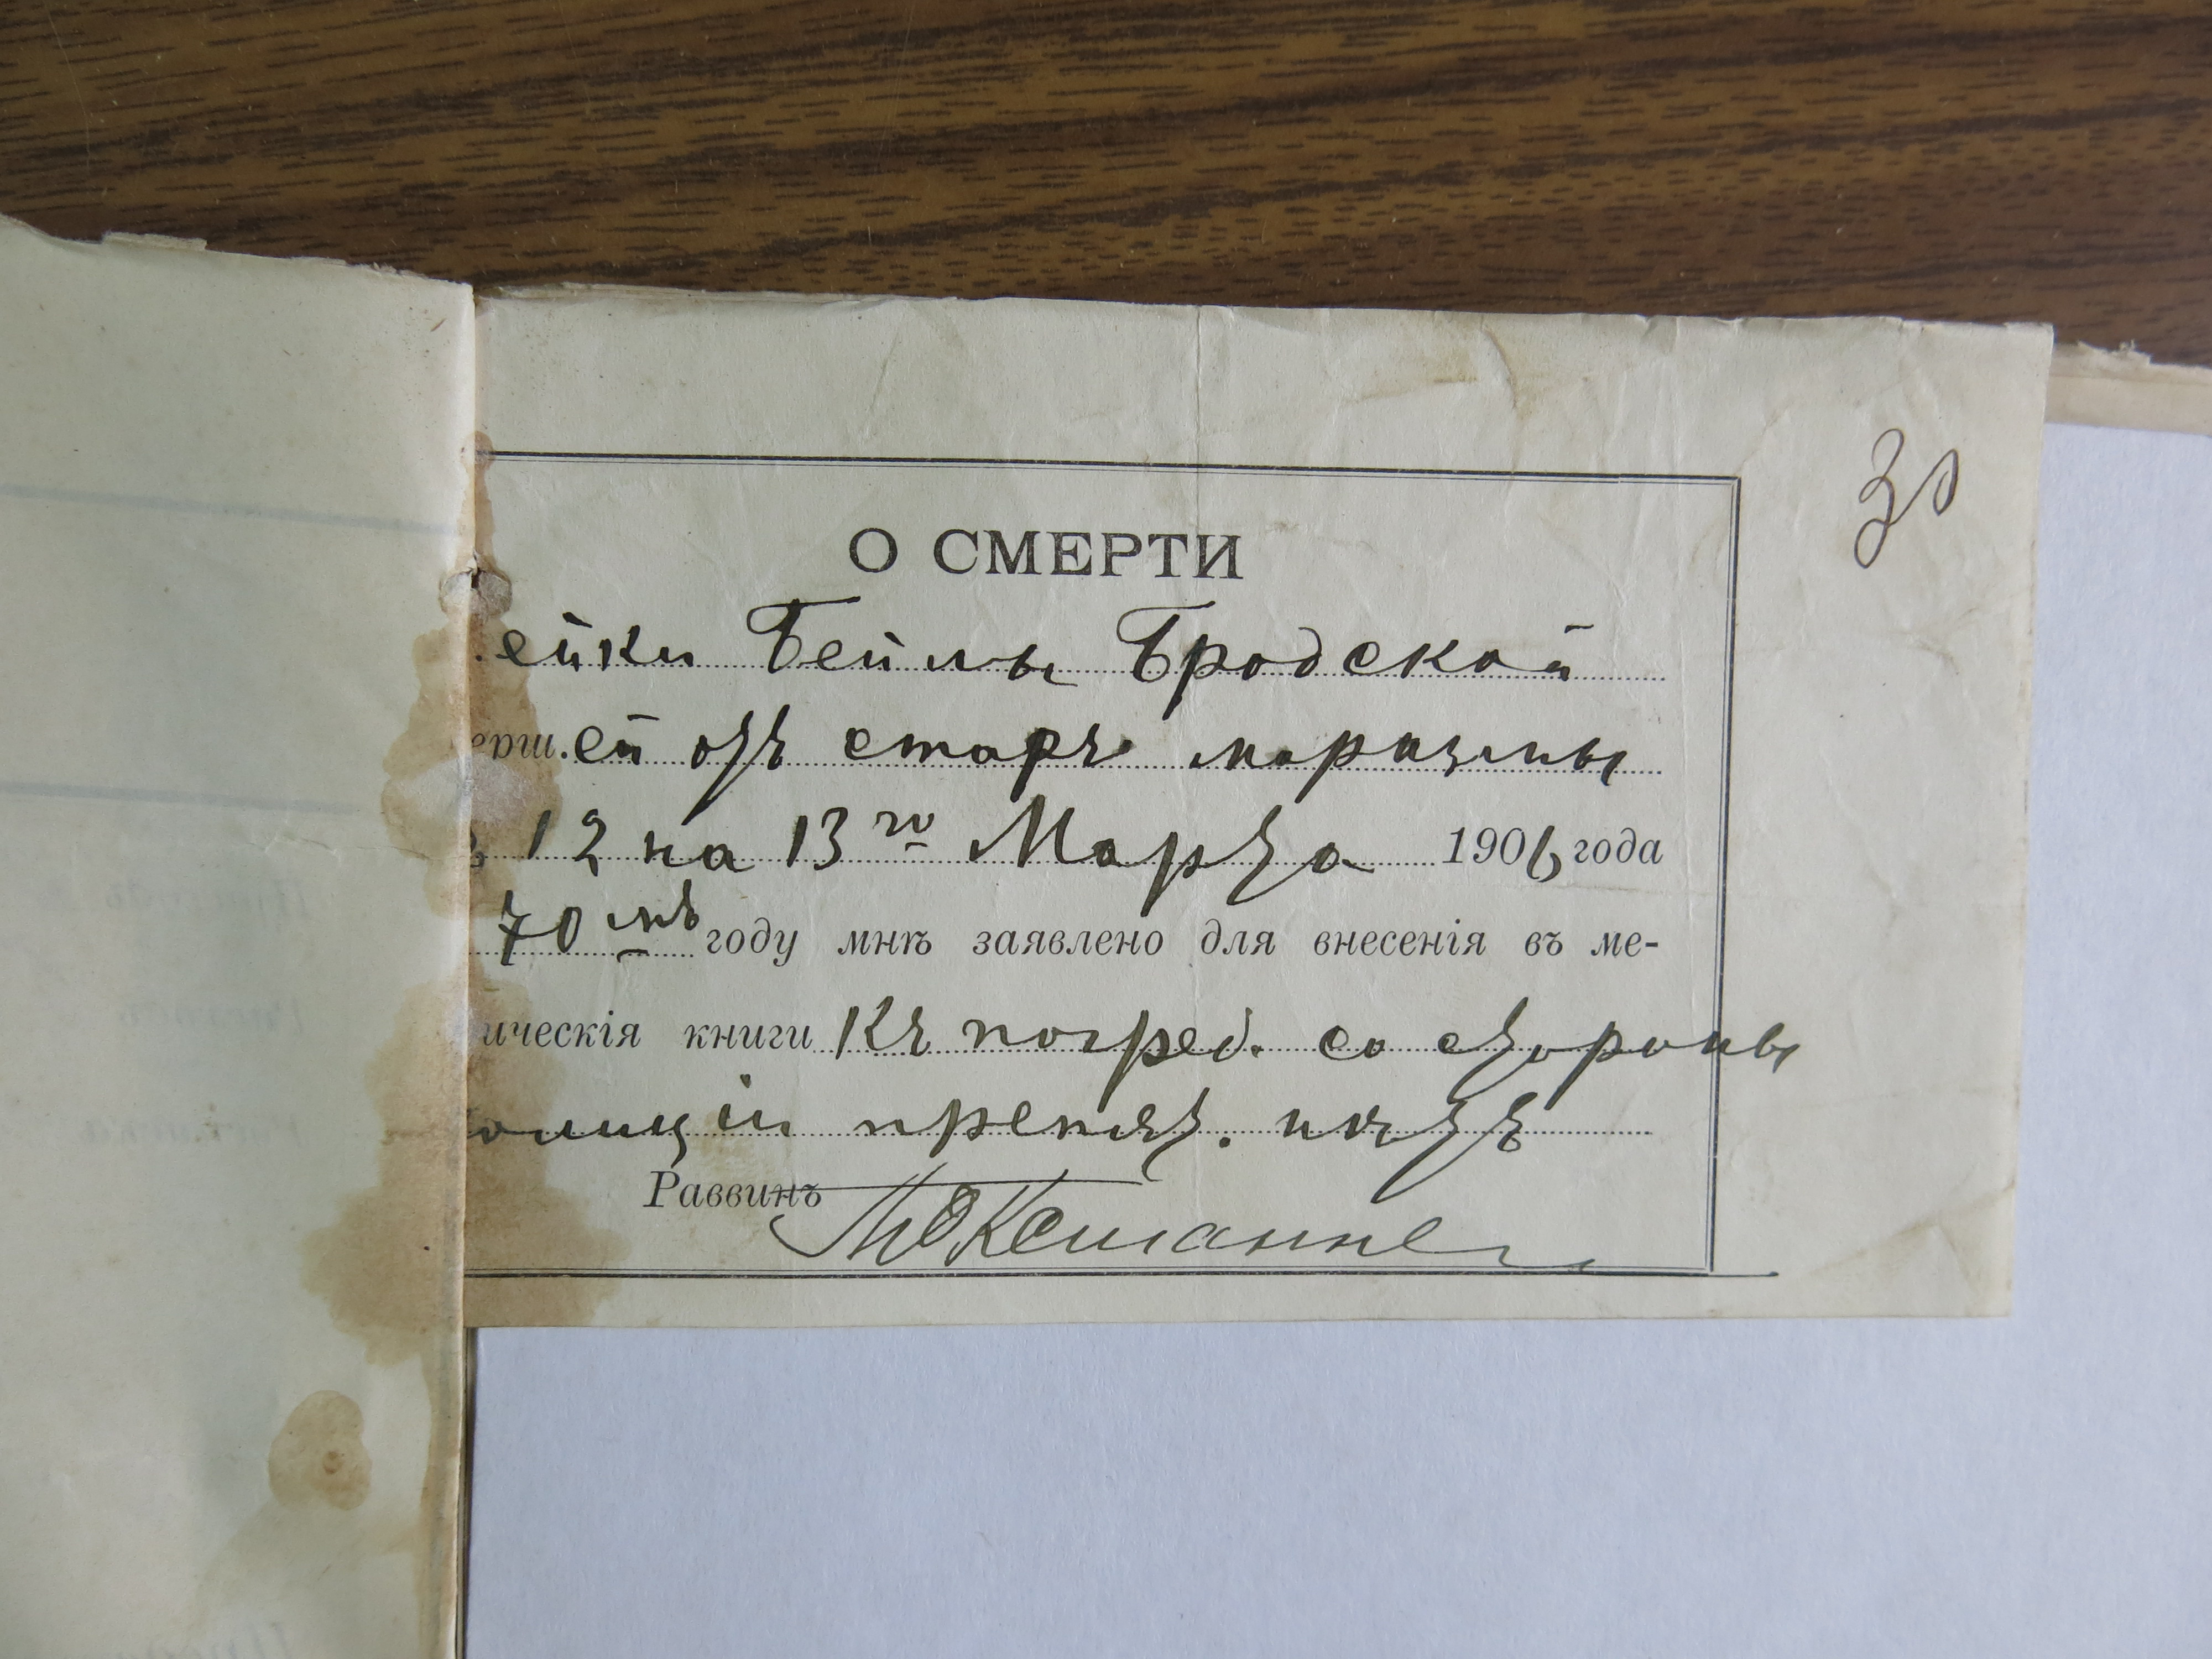 30
О СМЕРТИ
ейки Бейлы Бродской
ерш.ей отъ старч маразмы
12 на 13го Марта 1906 года
70мъ году мнѣ заявлено для внесенія въ ме-
ическія книги Къ погреб. со стороны
олиціи препят. нѣтъ
Раввинъ